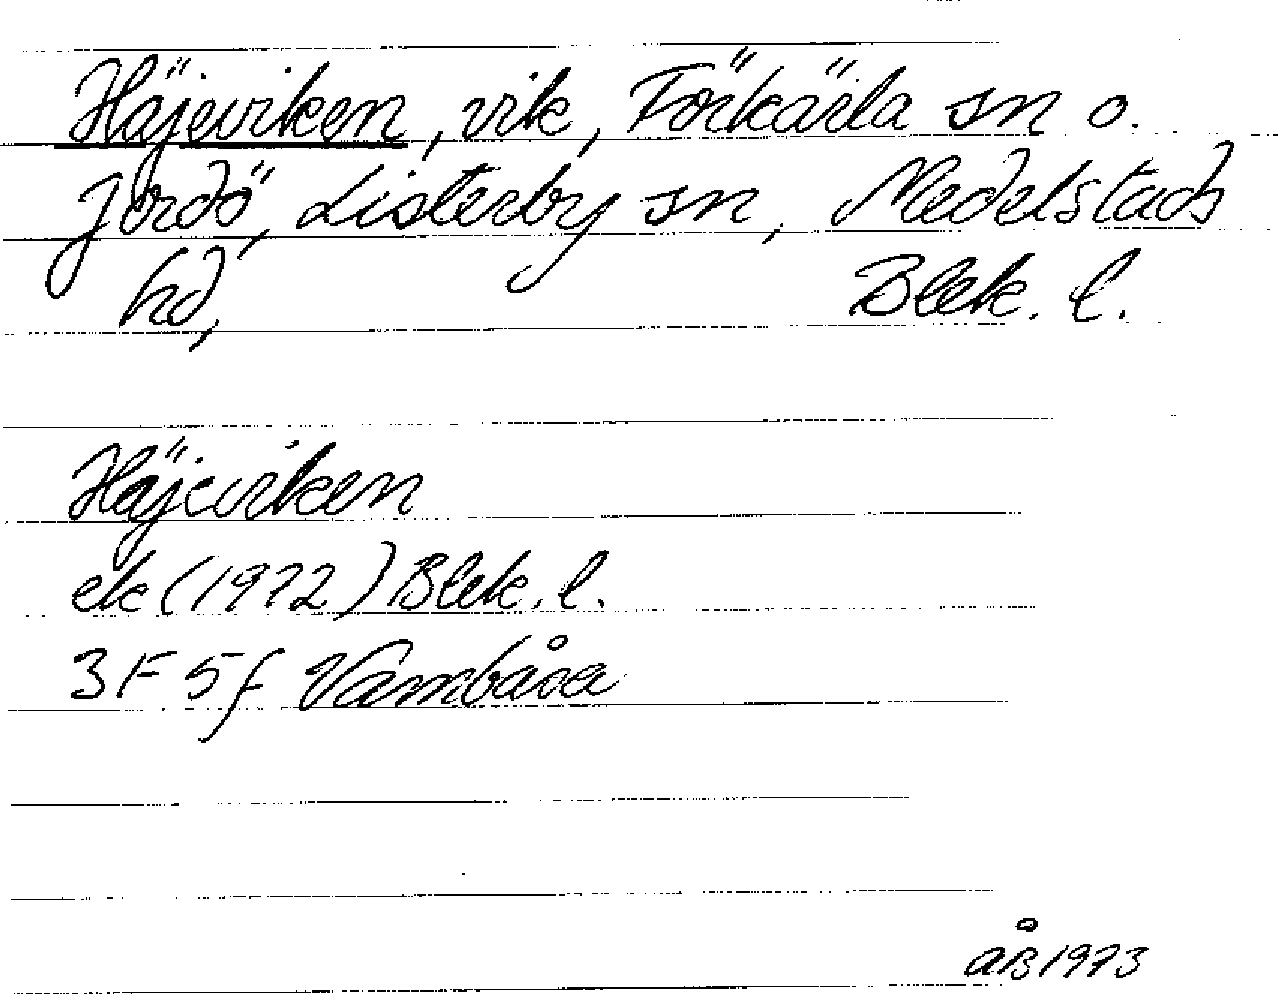 Häjeviken, vik, Förkärla sn o.
Jordö, Listerby sn, Medelstads
hd, Blek. l.
Häjeviken
ek (1972) Blek. l.
3F 5f Vambåsa
ÅB 1973